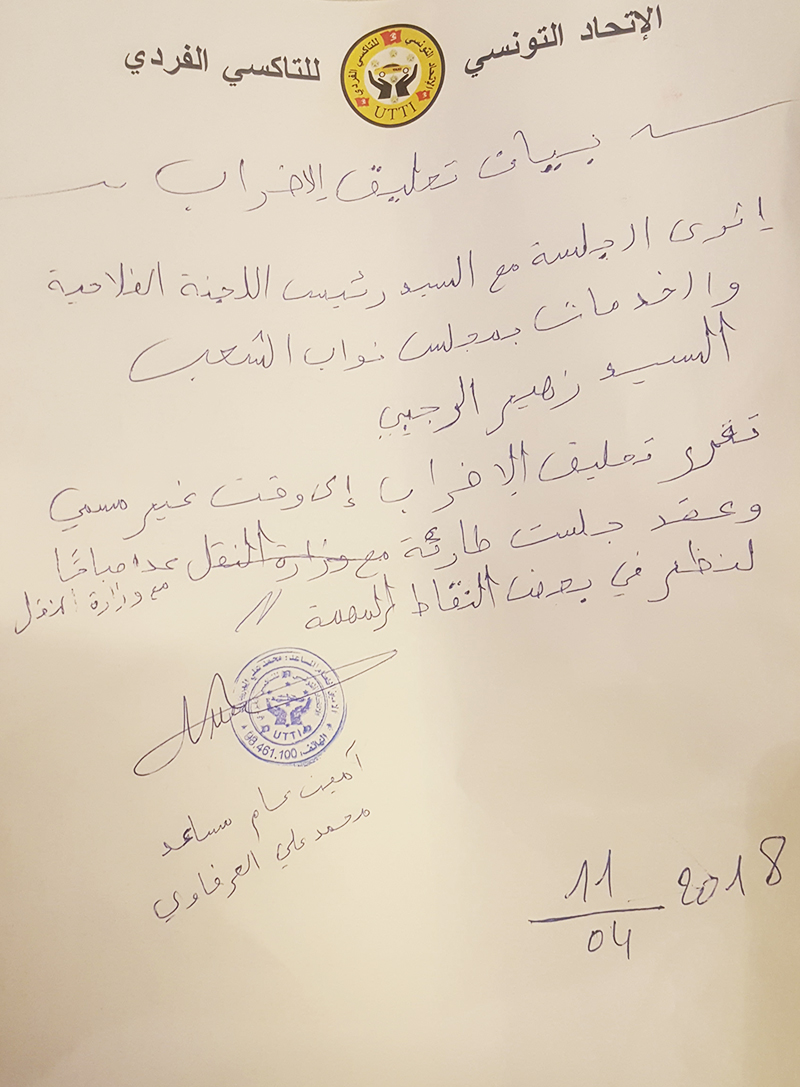 الإتحاد التونسي للتاكسي الفردي
UTTI
بيان تعليق الاضراب
إثرى الجلسة مع السيد رئيس اللجنة الفلاحية
والخدمات بمجلس نواب الشعب
السيد زهير الرجبي
تقرر تعليق الاضراب إلى وقت غير مسمي
وعقد جلست طارئة مع وزارة النقل غدا صباحًا
مع وزارة النقل
لنظر في بعض النقاط المهمة //
UTTI
98.461.100
آمين عام مساعد
محمد علي العرفاوي
11/04 2018